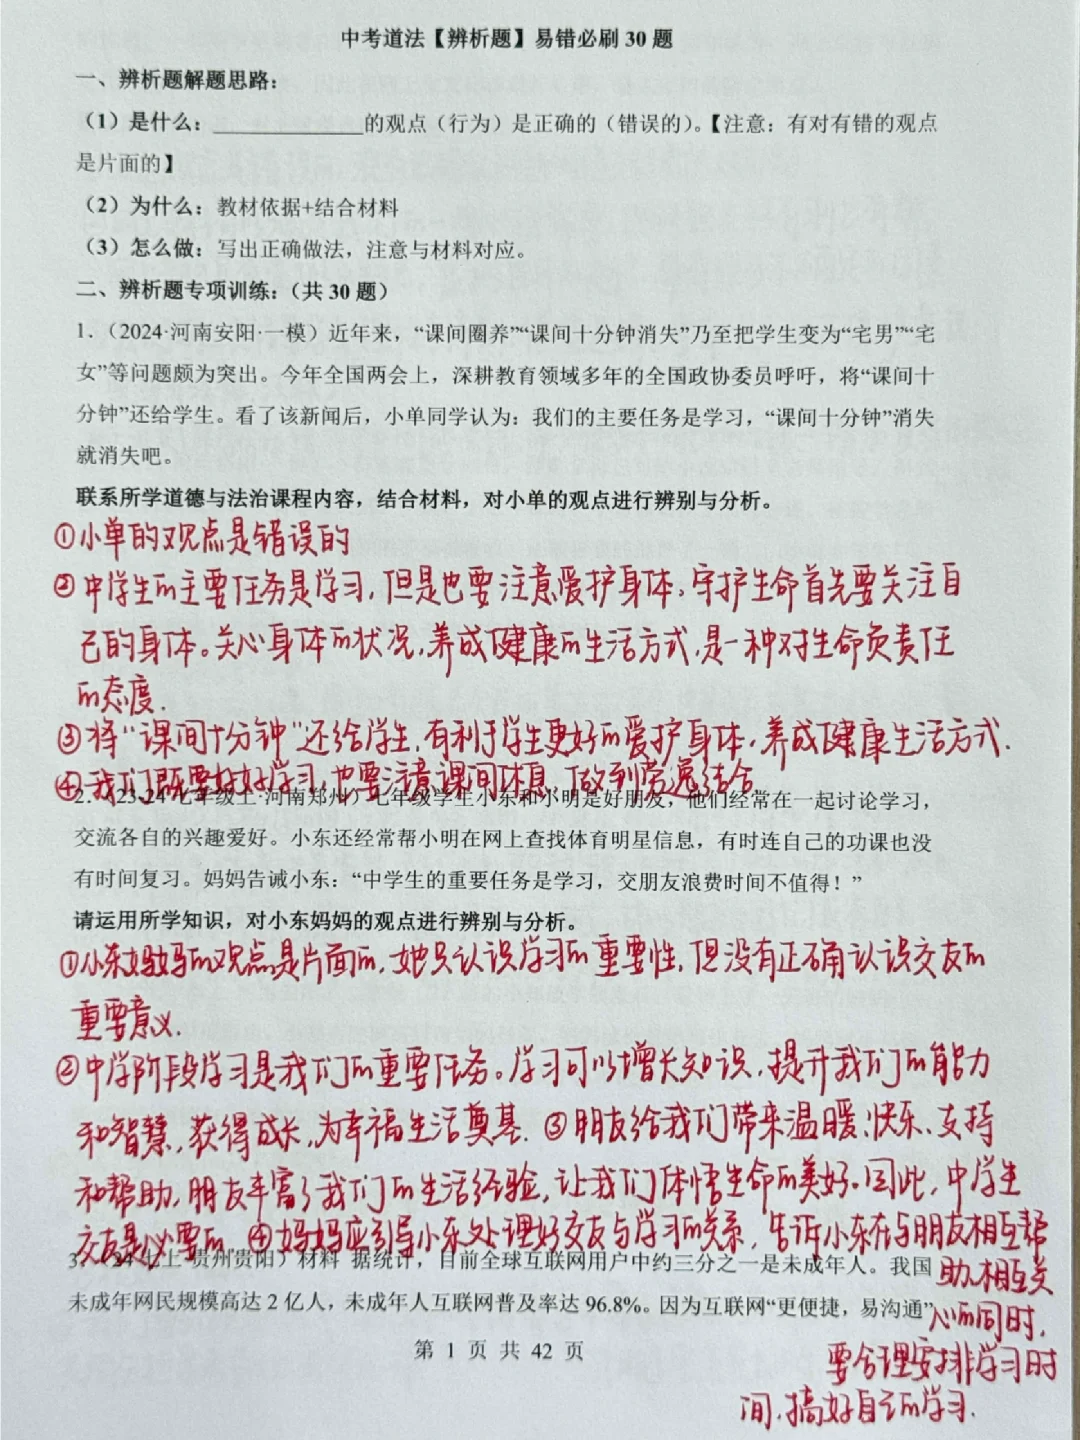 中考道法【辨析题】易错必刷 30 题
一、辨析题解题思路：
（1）是什么：______________的观点（行为）是正确的（错误的）。【注意：有对有错的观点
是片面的】
（2）为什么：教材依据+结合材料
（3）怎么做：写出正确做法，注意与材料对应。
二、辨析题专项训练：（共 30 题）
1．（2024·河南安阳·一模）近年来，“课间圈养”“课间十分钟消失”乃至把学生变为“宅男”“宅
女”等问题颇为突出。今年全国两会上，深耕教育领域多年的全国政协委员呼吁，将“课间十
分钟”还给学生。看了该新闻后，小单同学认为：我们的主要任务是学习，“课间十分钟”消失
就消失吧。
联系所学道德与法治课程内容，结合材料，对小单的观点进行辨别与分析。
①小单的观点是错误的
②中学生的主要任务是学习，但是也要注意爱护身体。守护生命首先要关注自
己的身体。关心身体的状况，养成健康的生活方式，是一种对生命负责任
的态度．
③将“课间十分钟”还给学生，有利于学生更好的爱护身体，养成健康生活方式．
④我们既要好好学习，也要注意课间休息，做到劳逸结合
2．（23-24 七年级上·河南郑州）七年级学生小东和小明是好朋友，他们经常在一起讨论学习，
交流各自的兴趣爱好。小东还经常帮小明在网上查找体育明星信息，有时连自己的功课也没
有时间复习。妈妈告诫小东：“中学生的重要任务是学习，交朋友浪费时间不值得！”
请运用所学知识，对小东妈妈的观点进行辨别与分析。
①小东妈妈的观点是片面的，她只认识学习的重要性，但没有正确认识交友的
重要意义．
②中学阶段学习是我们的重要任务。学习可以增长知识，提升我们的能力
和智慧，获得成长，为幸福生活奠基．③朋友给我们带来温暖、快乐、支持
和帮助，朋友丰富了我们的生活经验，让我们体悟生命的美好。因此，中学生
交友是必要的．④妈妈应引导小东处理好交友与学习的关系，告诉小东在与朋友相互帮
助、相互关
心的同时，
要合理安排学习时
间，搞好自己的学习．
24 七上·贵州贵阳）材料 据统计，目前全球互联网用户中约三分之一是未成年人。我国
未成年网民规模高达 2 亿人，未成年人互联网普及率达 96.8%。因为互联网“更便捷，易沟通”
第 1 页 共 42 页